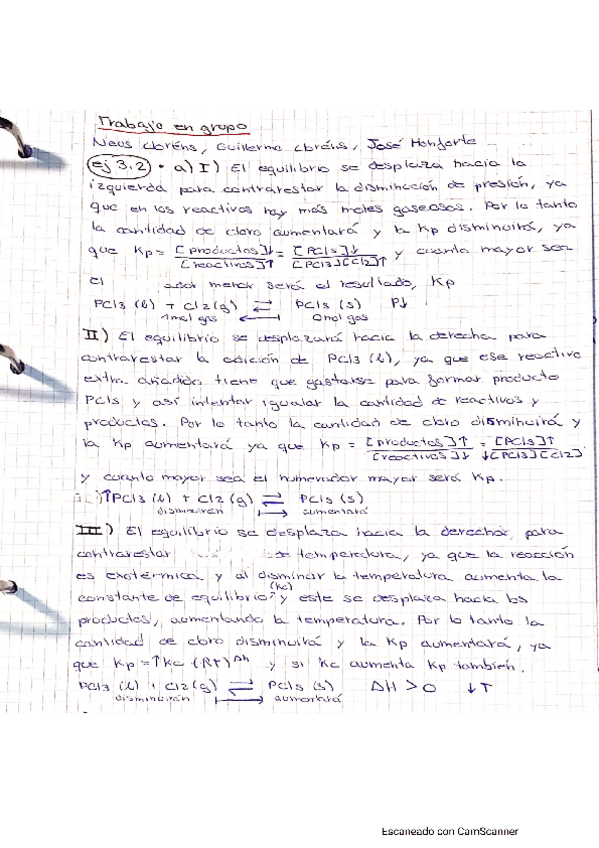 Trabajo en grupo
Neus Lloréns, Guillermo Lloréns, José Monforte
ej 3.2 • a) I) El equilibrio se desplaza hacia la
izquierda para contrarestar la disminución de presión, ya
que en los reactivos hay más moles gaseosos. Por lo tanto
la cantidad de cloro aumentará y la Kp disminuirá, ya
que Kp = [productos]↓ / [reactivos]↑ = [PCl5]↓ / [PCl3][Cl2]↑ y cuanto mayor sea
el ador menor será el resultado, Kp
PCl3 (l) + Cl2 (g) ⇄ PCl5 (s) P↓
1mol gas ← 0mol gas
II) El equilibrio se desplazará hacia la derecha para
contrarestar la adición de PCl3 (l), ya que ese reactivo
extra añadido tiene que gastarse para formar producto
PCl5 y así intentar igualar la cantidad de reactivos y
productos. Por lo tanto la cantidad de cloro disminuirá y
la Kp aumentará ya que Kp = [productos]↑ / [reactivos]↓ = [PCl5]↑ / ↓[PCl3][Cl2]
y cuanto mayor sea el numerador mayor será Kp.
↑PCl3 (l) + Cl2 (g) ⇄ PCl5 (s)
disminuirán → aumentará
III) El equilibrio se desplaza hacia la derecha, para
contrarestar de temperatura, ya que la reacción
es exotérmica y al disminuir la temperatura aumenta la
constante de equilibrio (Kc) y este se desplaza hacia los
productos, aumentando la temperatura. Por lo tanto la
cantidad de cloro disminuirá y la Kp aumentará, ya
que Kp = ↑Kc (RT)^Δn y si Kc aumenta Kp también.
PCl3 (l) + Cl2 (g) ⇄ PCl5 (s) ΔH > 0 ↓T
disminuirán → aumentará
Escaneado con CamScanner